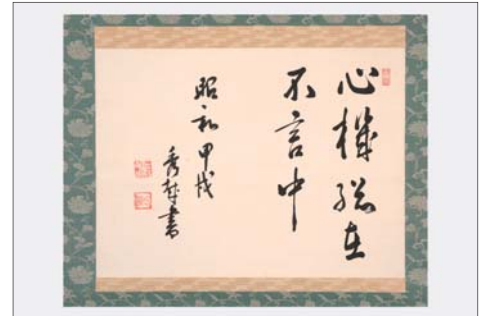 心機総在
不言中
昭和甲戌
秀林書